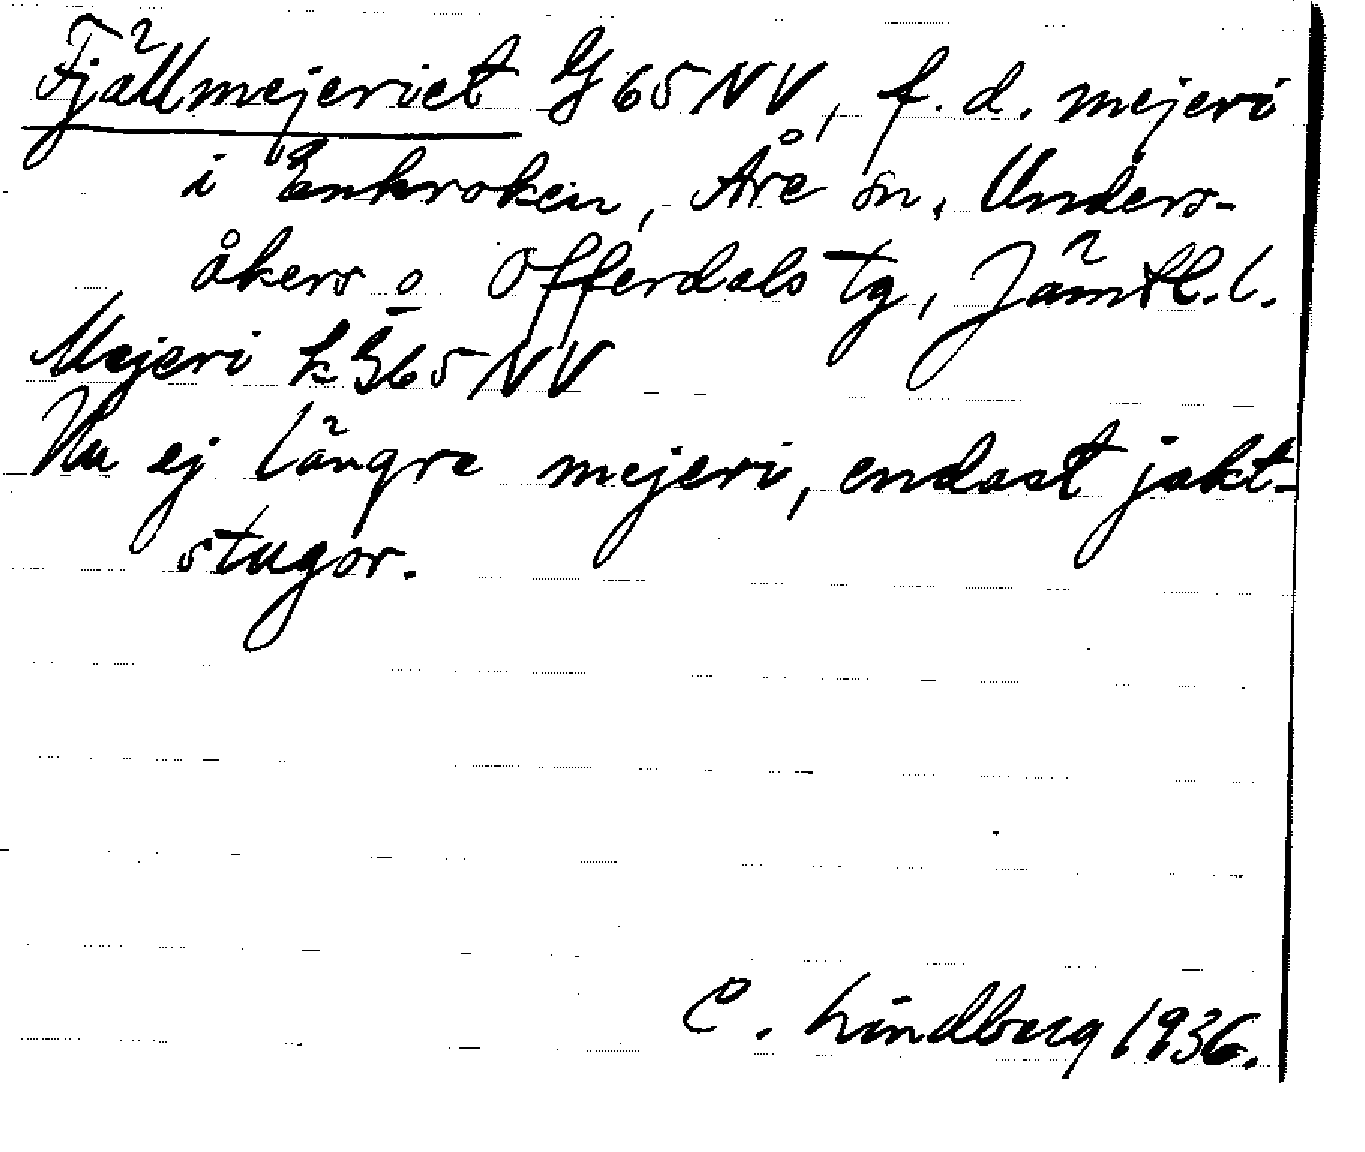 Fjällmejeriet G 65 NV, f. d. mejeri
i Enkroken, Åre sn, Unders-
åkers o Offerdals tg, Jämtl. l.
Mejeri k G65 NV
Nu ej längre mejeri, endast jakt-
stugor.
C. Lindberg 1936.